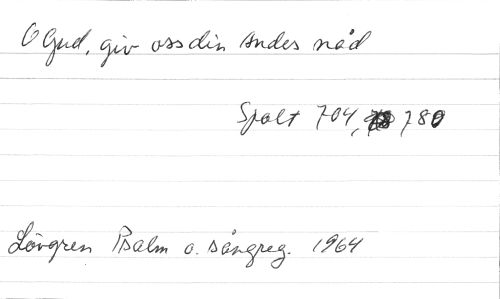 O Gud, giv oss din Andes nåd
Spalt 704, 780
Lövgren Psalm o. sångreg. 1964